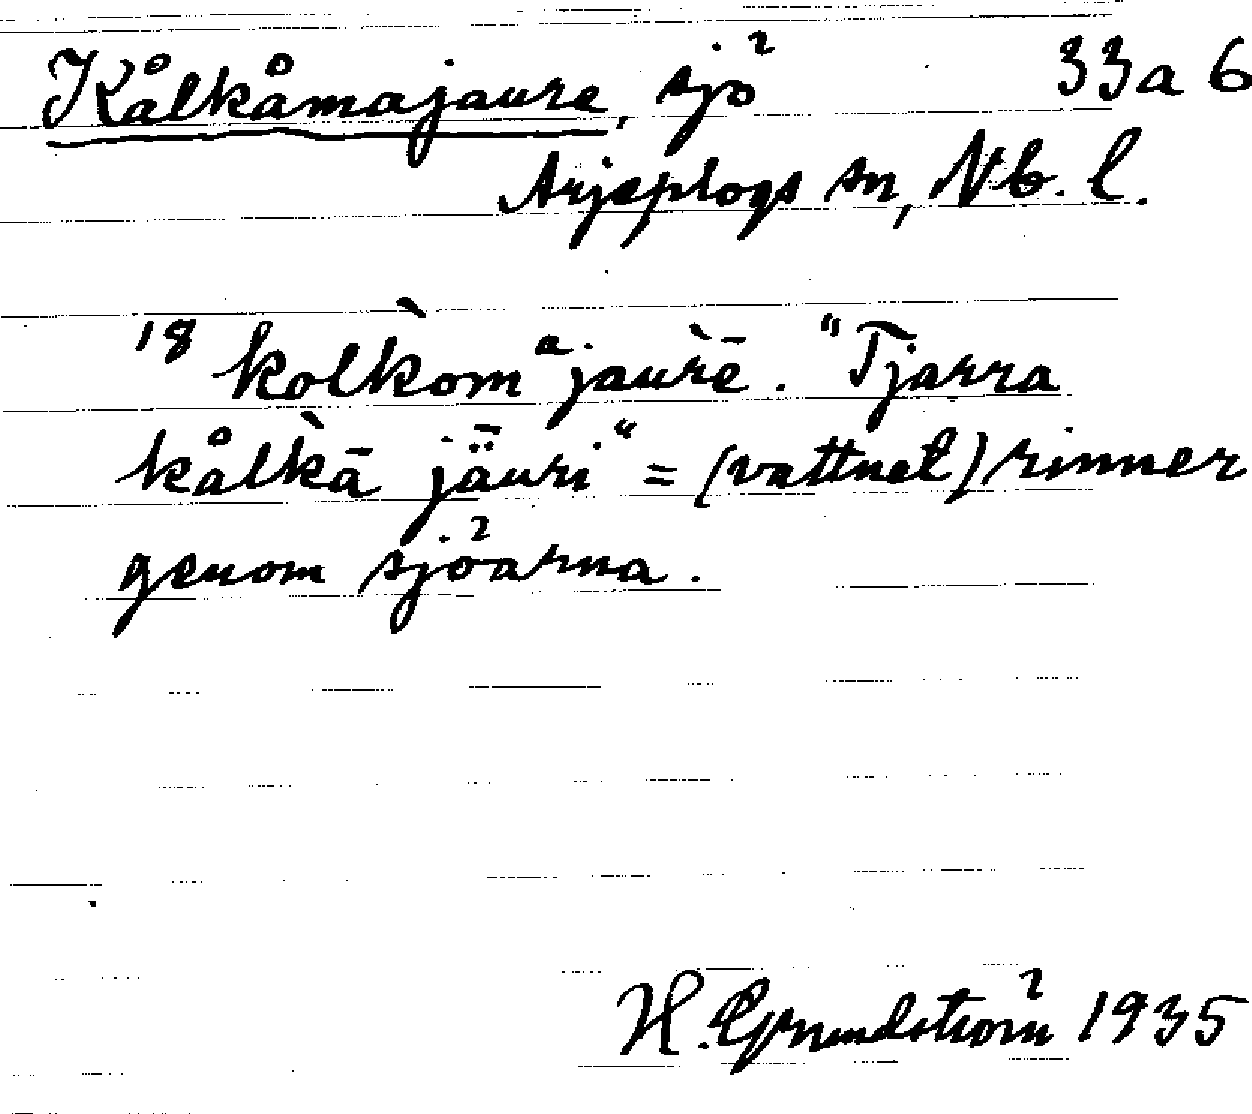 Kålkåmajaure, sjö 33a6
Arjeplogs sn, Nb. l.
18 kolk̀omᵃjaur̀ē. "Tjarra
kålk̀ā jǟuri" = (vattnet) rinner
genom sjöarna.
H. Grundström 1935